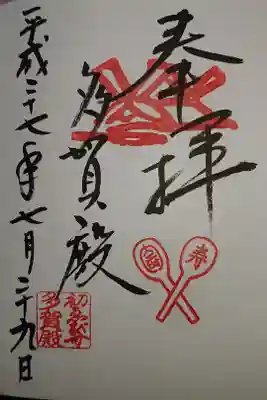 奉拝
多賀殿
平成二十七年七月二十九日
多賀殿
寿